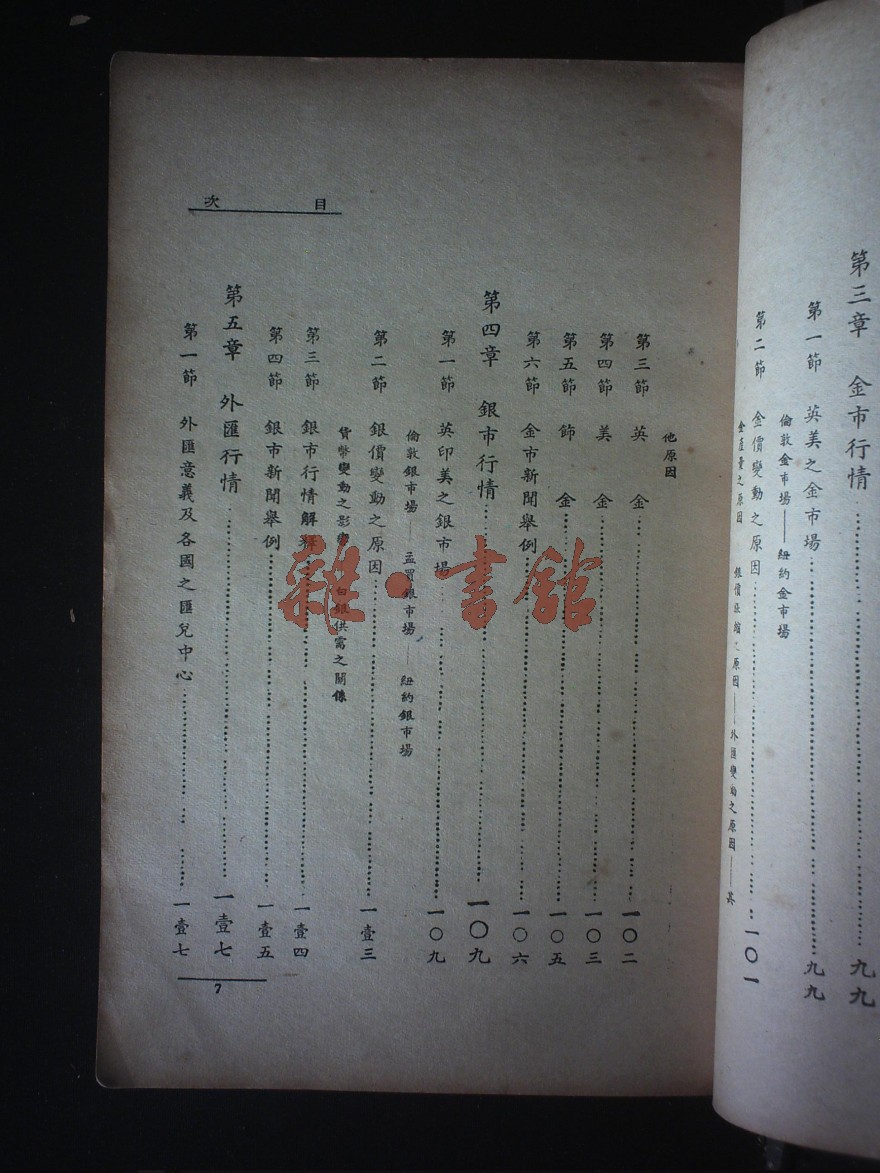 第三章　金市行情……九九
第一節　英美之金市場……九九
倫敦金市場——紐約金市場
第二節　金價變動之原因……一〇一
金產量之原因　銀價漲縮之原因——外匯變動之原因——其
目次
他原因
第三節　英　金……一〇二
第四節　美　金……一〇三
第五節　飾　金……一〇五
第六節　金市新聞舉例……一〇六
第四章　銀市行情……一〇九
第一節　英印美之銀市場……一〇九
倫敦銀市場——孟買銀市場——紐約銀市場
第二節　銀價變動之原因……一壹三
貨幣變動之影響　白銀供需之關係
第三節　銀市行情解釋……一壹四
第四節　銀市新聞舉例……一壹五
第五章　外匯行情……一壹七
第一節　外匯意義及各國之匯兌中心……一壹七
7
雜·書館